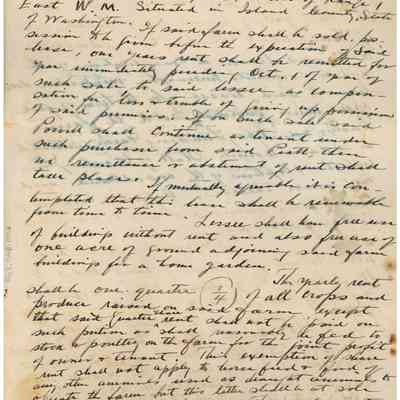 of Range 1
East W. M. Situated in Island County, State
of Washington. If said farm shall be sold, pos-
session to be given before the expiration of said
lease, one years rent shall be remitted for
year immediately preceding Oct. 1 of year of
such sale to said lessee as compen-
sation for loss & trouble of giving up possession
of said premises. If on such sale said
shall continue as tenant under
such purchaser from said Pratt then
no remittance or abatement of rent shall
take place. If mutually agreeable it is con-
templated that this lease shall be renewable
from time to time. Lessee shall have free use
of buildings without rent and also free use of
one acre of ground adjoining said farm
buildings for a home garden.
The yearly rent
shall be one quarter (1/4) of all crops and
produce raised on said farm, except
that said quarter share rent shall not be paid on
such portion as shall reasonably be fed to
stock & poultry on the farm for the joint profit
of owner & tenant. This exemption of share
rent shall not apply to horse feed & food of
any other animals used as draught animals to
operate the farm but this latter shall be at sole